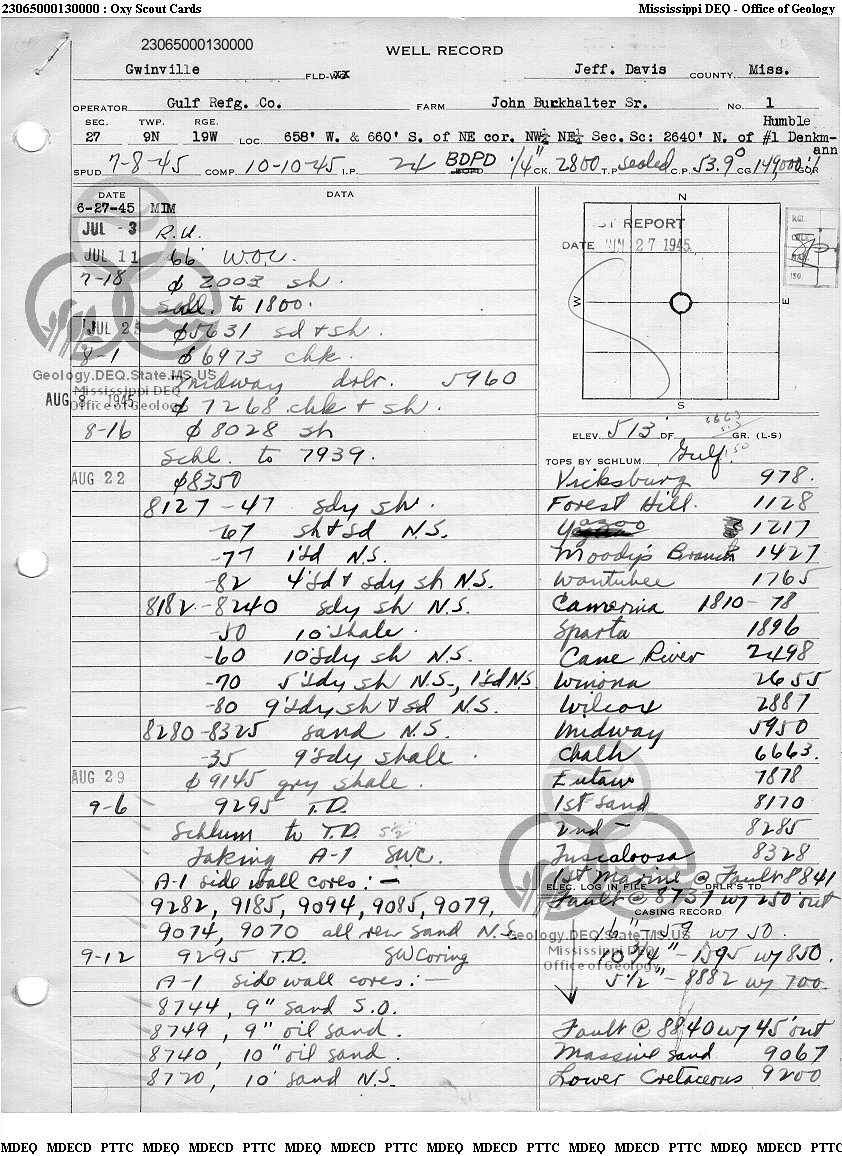 23065000130000 : Oxy Scout Cards
Mississippi DEQ - Office of Geology
23065000130000
WELL RECORD
Gwinville FLD-WX Jeff. Davis COUNTY, Miss.
OPERATOR Gulf Refg. Co. FARM John Burkhalter Sr. No. 1
SEC. TWP. RGE. Humble
27 9N 19W LOC. 658' W. & 660' S. of NE cor. NW¼ NE¼ Sec. Sc: 2640' N. of #1 Denkmann
SPUD 7-8-45 COMP. 10-10-45 I.P. 24 BDPD 1/4" CK. 2800 T.P. sealed C.P. 53.9° CG 149,000:1 GOR
DATE DATA
6-27-45 MIM
JUL - 3 R.U.
JUL 11 66' W.O.C.
7-18 ϕ 2003 sh.
Schl. to 1800.
JUL 25 ϕ5631 sd & sh.
8-1 ϕ 6973 chk.
Midway drlr. 5960
AUG 8, 1945 ϕ 7268 chk & sh.
8-16 ϕ 8028 sh
Schl. to 7939.
AUG 22 ϕ8350
8127-47 sdy sh.
-67 sh & sd N.S.
-77 1'sd N.S.
-82 4'sd & sdy sh N.S.
8182-8240 sdy sh N.S.
-50 10' shale.
-60 10'sdy sh N.S.
-70 5'sdy sh N.S., 1'sd N.S.
-80 9'sdy sh & sd N.S.
8280-8325 sand N.S.
-35 9'sdy shale.
AUG 29 ϕ 9145 gry shale.
9-6 9295 T.D.
Schlum to T.D. 5½"
Taking A-1 SWC.
A-1 side wall cores:-
9282, 9185, 9094, 9085, 9079,
9074, 9070 all rew sand N.S.
9-12 9295 T.D. SW Coring
A-1 side wall cores:-
8744, 9" sand S.O.
8749, 9" oil sand.
8740, 10" oil sand.
8720, 10' sand N.S.
1ST REPORT
DATE JUN 27 1945
N
W
E
S
ELEV. 513' DF GR. (L-S)
6663
513
TOPS BY SCHLUM. Gulf.
Vicksburg 978.
Forest Hill. 1128
Yazoo 1217
Moody's Branch 1427
Wautubee 1765
Camerina 1810-78
Sparta 1896
Cane River 2498
Winona 2655
Wilcox 2887
Midway 5950
Chalk 6663.
Eutaw 7878
1st Sand 8170
2nd - 8285
Tuscaloosa 8328
1st Marine @ Fault 8841
ELEC. LOG IN FILE DRLR'S TD
Fault @ 8737 w/ 250' out
CASING RECORD
16" - 59 w/ 50.
10 3/4" - 1595 w/ 850.
5 1/2" - 8882 w/ 700
Fault @ 8840 w/ 45' out
Massive sand 9067
Lower Cretaceous 9200
Geology.DEQ.State.MS.US
Mississippi DEQ
Office of Geology
Geology.DEQ.State.MS.US
Mississippi DEQ
Office of Geology
MDEQ MDECD PTTC MDEQ MDECD PTTC MDEQ MDECD PTTC MDEQ MDECD PTTC MDEQ MDECD PTTC MDEQ MDECD PTTC